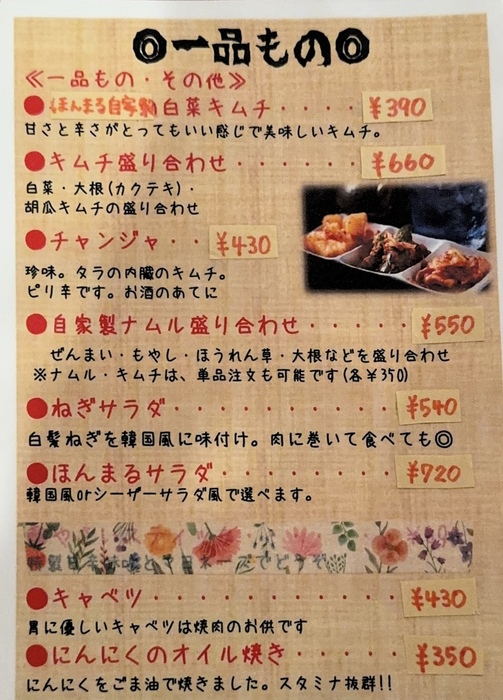 ◎一品もの◎
≪一品もの・その他≫
●ほんまる自家製白菜キムチ・・・・¥390
甘さと辛さがとってもいい感じで美味しいキムチ。
●キムチ盛り合わせ・・・・・・¥660
白菜・大根(カクテキ)・
胡瓜キムチの盛り合わせ
●チャンジャ・・¥430
珍味。タラの内臓のキムチ。
ピリ辛です。お酒のあてに
●自家製ナムル盛り合わせ・・・・・¥550
ぜんまい・もやし・ほうれん草・大根などを盛り合わせ
※ナムル・キムチは、単品注文も可能です(各¥350)
●ねぎサラダ・・・・・・・・・・¥540
白髪ねぎを韓国風に味付け。肉に巻いて食べても◎
●ほんまるサラダ・・・・・・・・¥720
韓国風orシーザーサラダ風で選べます。
●キャベツ・・・・・・・・・・・¥430
胃に優しいキャベツは焼肉のお供です
●にんにくのオイル焼き・・・・・¥350
にんにくをごま油で焼きました。スタミナ抜群!!